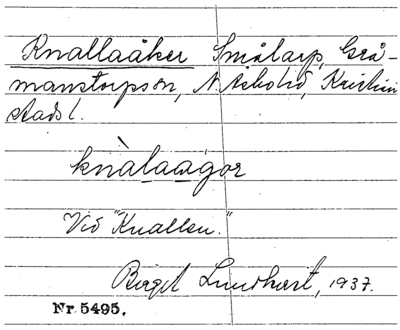 Knallaåker Smålarp, Grå-
manstorpssn, N. Åsbohd, Kristian
stads l.
knàlaagor
Vid "Knallen."
Birgit Lundkvist, 1937.
Nr 5495.